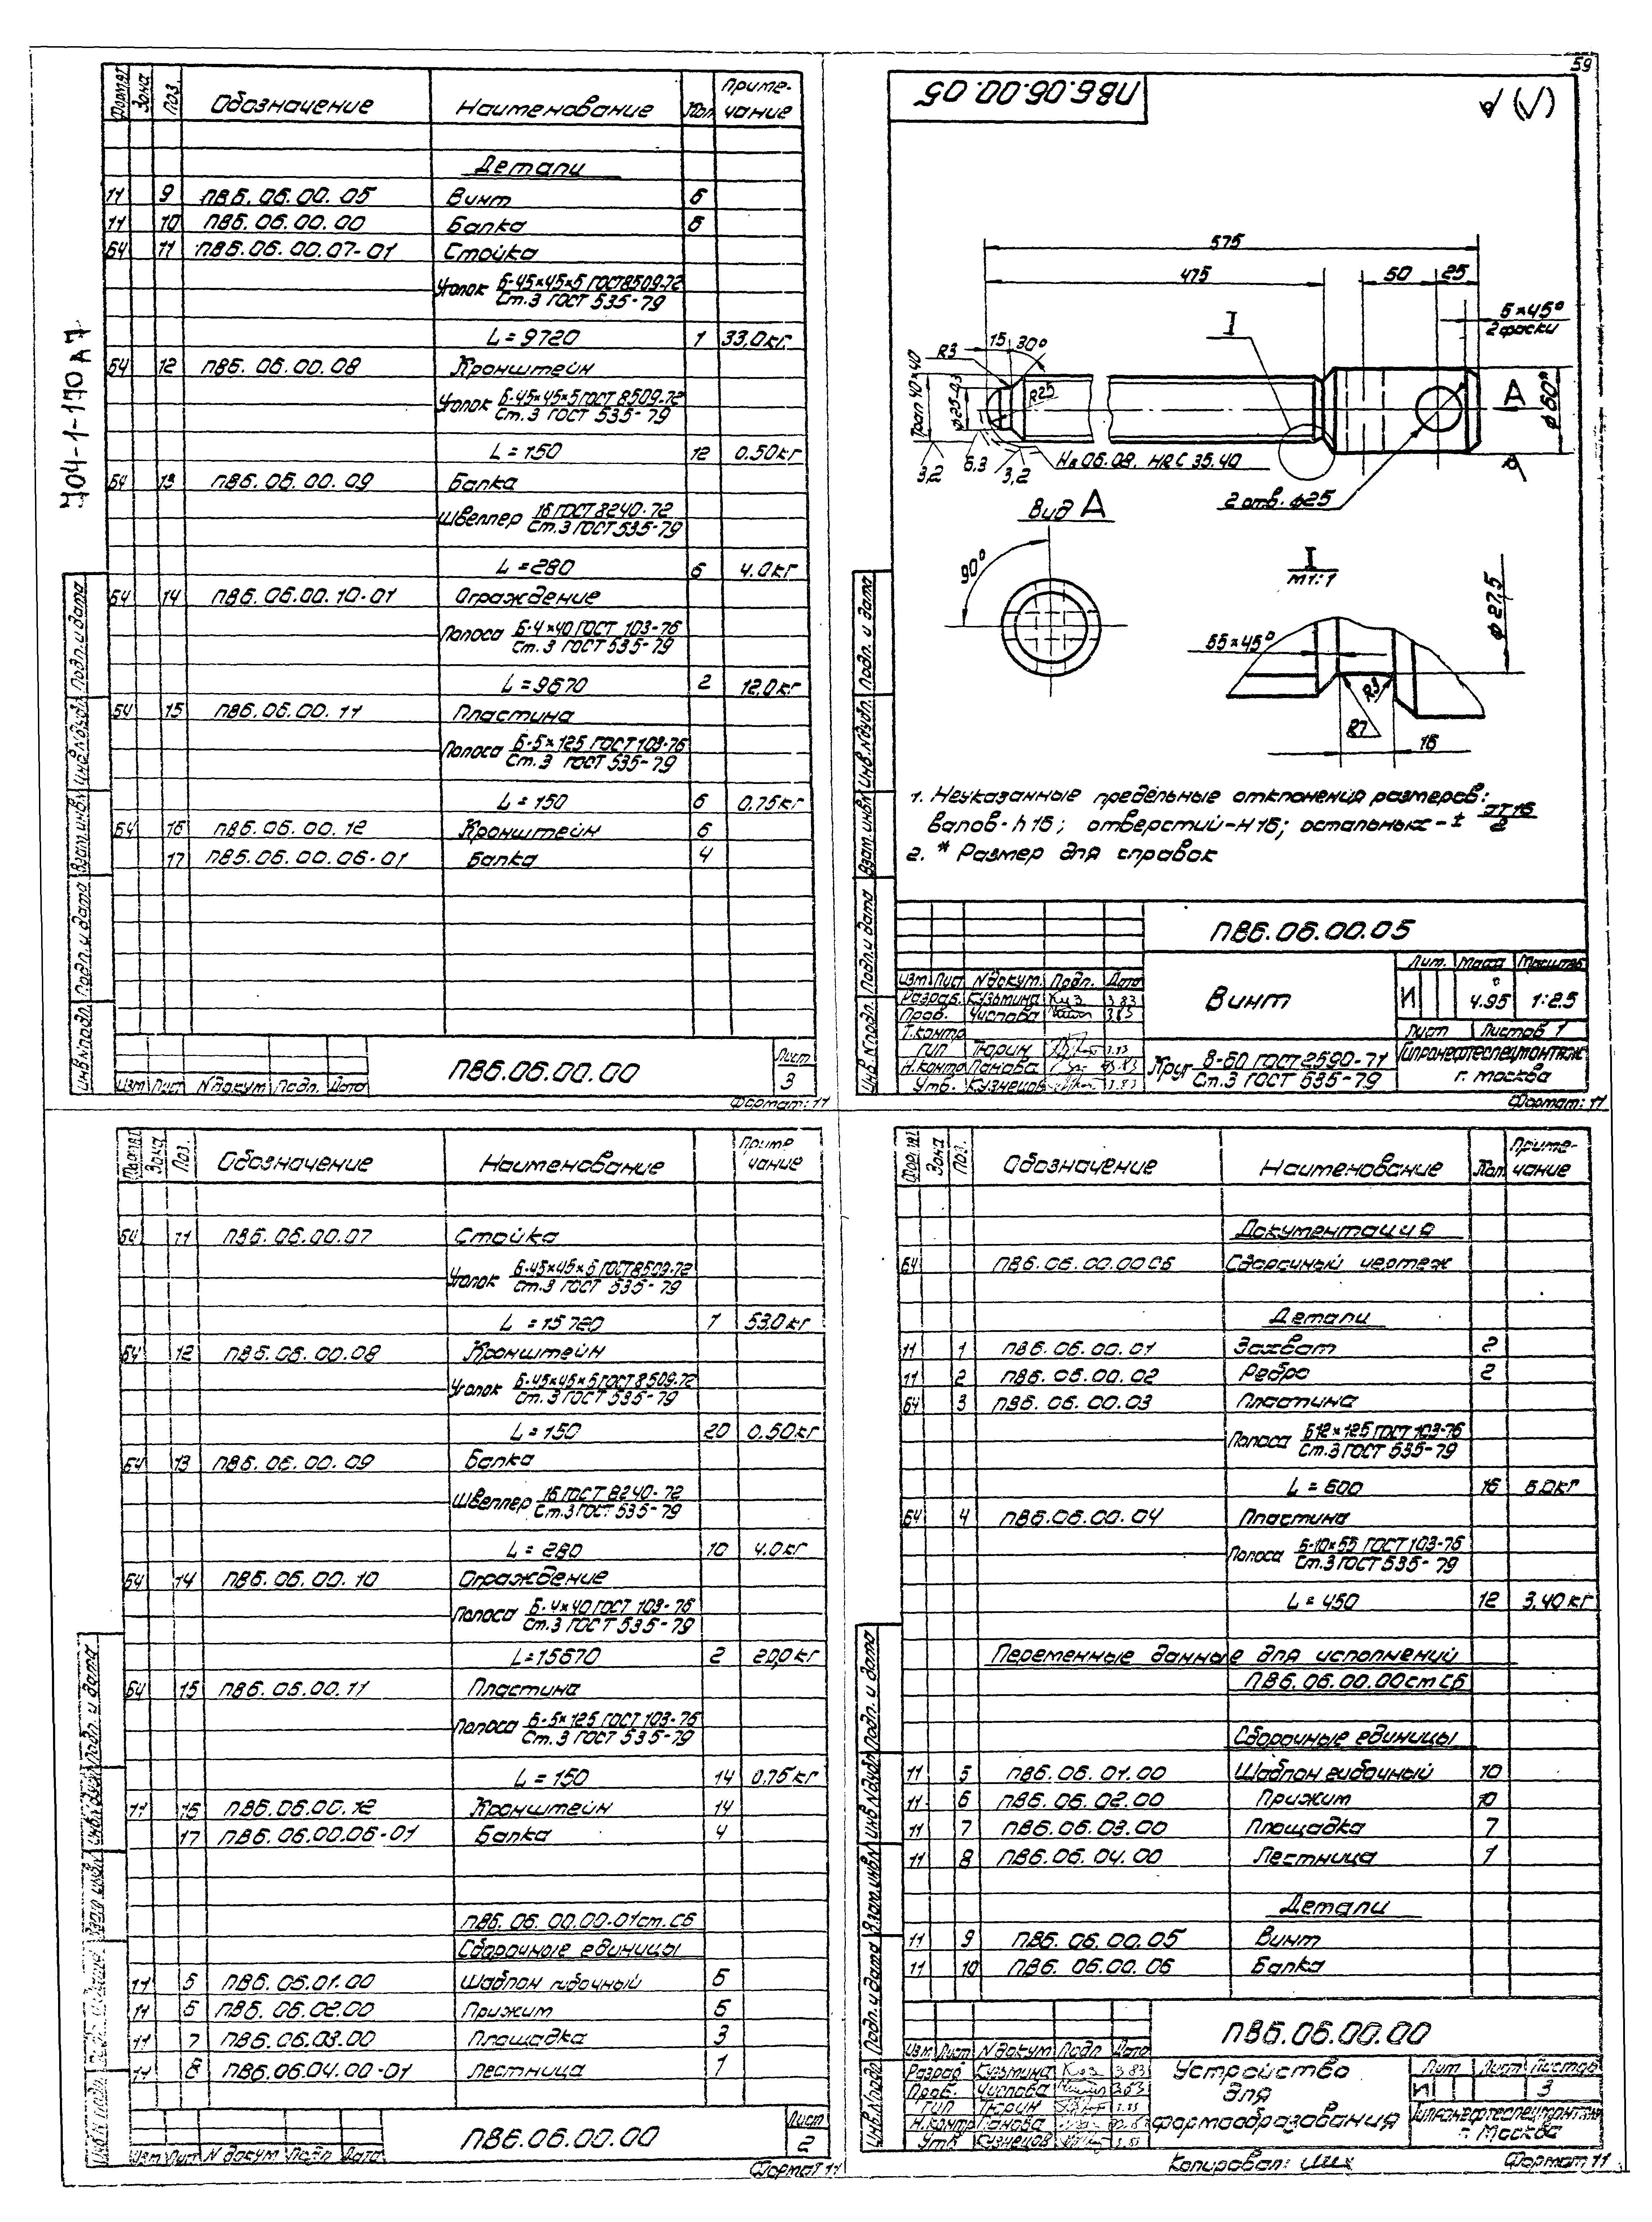 59
704-1-170 А7
Формат Зона Поз. Обозначение Наименование Кол Приме-чание
Детали
11 9 ПВ6.06.00.05 Винт 6
11 10 ПВ6.06.00.00 Балка 6
БЧ 11 ПВ6.06.00.07-01 Стойка
Уголок Б-45×45×5 ГОСТ 8509-72
Ст.3 ГОСТ 535-79
L=9720 1 33,0кг
БЧ 12 ПВ6.06.00.08 Кронштейн
Уголок Б-45×45×5 ГОСТ 8509-72
Ст.3 ГОСТ 535-79
L=150 12 0.50кг
БЧ 13 ПВ6.06.00.09 Балка
Швеллер 16 ГОСТ 8240-72
Ст.3 ГОСТ 535-79
L=280 6 4.0кг
БЧ 14 ПВ6.06.00.10-01 Ограждение
Полоса Б-4×40 ГОСТ 103-76
Ст.3 ГОСТ 535-79
L=9670 2 12,0кг
БЧ 15 ПВ6.06.00.11 Пластина
Полоса Б-5×125 ГОСТ 103-76
Ст.3 ГОСТ 535-79
L=150 6 0.75кг
БЧ 16 ПВ6.06.00.12 Кронштейн 6
17 ПВ6.06.00.06-01 Балка 4
Инв.№подл. Подп.и дата Взам.инв.№ Инв.№дубл. Подп.и дата
Изм Лист №докум Подп. Дата
ПВ6.06.00.00
Лист
3
Формат:11
ПВ6.06.00.05
575
475 50 25
5×45°
2 фаски
I
15 30°
R3
Трап 40×40
ф25-0,3
R25
А
ф60*
3,2 6,3 3,2
HRC 35.40
2 отв. ф25
Вид А
90°
I
М1:1
ф27,5
55×45°
R3
R7
16
1. Неуказанные предельные отклонения размеров:
валов-h16; отверстий-H16; остальных-± IT16/2
2. * Размер для справок
ПВ6.06.00.05
Изм Лист №докум. Подп. Дата
Разраб. Кузьмина 3.83
Пров. Чистова 3.83
Т.контр
ГИП Тюрин
Н.контр Панова
Утв. Кузнецов
Винт
Лит. Масса Масштаб
И 4.95 1:2.5
Лист Листов 1
Круг В-60 ГОСТ 2590-71
Ст.3 ГОСТ 535-79
Гипронефтеспецмонтаж
г. Москва
Инв.№подл. Подп.и дата Взам.инв.№ Инв.№дубл. Подп. и дата
Формат: 11
Формат Зона Поз. Обозначение Наименование Приме чание
БЧ 11 ПВ6.06.00.07 Стойка
Уголок Б-45×45×5 ГОСТ 8509-72
Ст.3 ГОСТ 535-79
L=15720 1 53.0кг
БЧ 12 ПВ6.06.00.08 Кронштейн
Уголок Б-45×45×5 ГОСТ 8509-72
Ст.3 ГОСТ 535-79
L=150 20 0.50кг
БЧ 13 ПВ6.06.00.09 Балка
Швеллер 16 ГОСТ 8240-72
Ст.3 ГОСТ 535-79
L=280 10 4.0кг
БЧ 14 ПВ6.06.00.10 Ограждение
Полоса Б-4×40 ГОСТ 103-76
Ст.3 ГОСТ 535-79
L=15670 2 20,0кг
БЧ 15 ПВ6.06.00.11 Пластина
Полоса Б-5×125 ГОСТ 103-76
Ст.3 ГОСТ 535-79
L=150 14 0.75кг
11 16 ПВ6.06.00.12 Кронштейн 14
17 ПВ6.06.00.06-01 Балка 4
ПВ6.06.00.00-01ст.СБ
Сборочные единицы
11 5 ПВ6.06.01.00 Шаблон гибочный 6
11 6 ПВ6.06.02.00 Прижим 6
11 7 ПВ6.06.03.00 Площадка 3
11 8 ПВ6.06.04.00-01 Лестница 1
Изм Лист №докум Подп Дата
ПВ6.06.00.00
Лист
2
Формат 11
Формат Зона Поз. Обозначение Наименование Кол. Приме-чание
Документация
БЧ ПВ6.06.00.00СБ Сборочный чертеж
Детали
11 1 ПВ6.06.00.01 Захват 2
11 2 ПВ6.06.00.02 Ребро 2
БЧ 3 ПВ6.06.00.03 Пластина
Полоса Б12×125 ГОСТ 103-76
Ст.3 ГОСТ 535-79
L=600 16 6.0кг
БЧ 4 ПВ6.06.00.04 Пластина
Полоса Б-10×55 ГОСТ 103-76
Ст.3 ГОСТ 535-79
L=450 12 3.40кг
Переменные данные для исполнений
ПВ6.06.00.00ст СБ
Сборочные единицы
11 5 ПВ6.06.01.00 Шаблон гибочный 10
11 6 ПВ6.06.02.00 Прижим 10
11 7 ПВ6.06.03.00 Площадка 7
11 8 ПВ6.06.04.00 Лестница 1
Детали
11 9 ПВ6.06.00.05 Винт
11 10 ПВ6.06.00.06 Балка
ПВ6.06.00.00
Изм Лист №докум Подп Дата
Разраб Кузьмина 3.83
Пров. Чистова 3.83
ГИП Тюрин
Н.контр Панова
Утв Кузнецов
Устройство
для
формообразования
Лит Лист Листов
И 3
Гипронефтеспецмонтаж
г. Москва
Инв.№подл. Подп.и дата Взам.инв.№ Инв.№дубл Подп. и дата
Копировал:
Формат 11